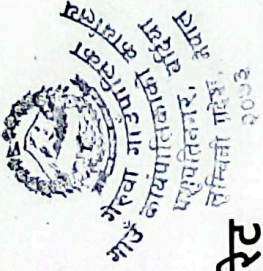 गेरुवा गाउँपालिका
गाउँ कार्यपालिकाको कार्यालय
पशुपतिनगर, बर्दिया
लुम्बिनी प्रदेश, नेपाल
२०७३
रेट